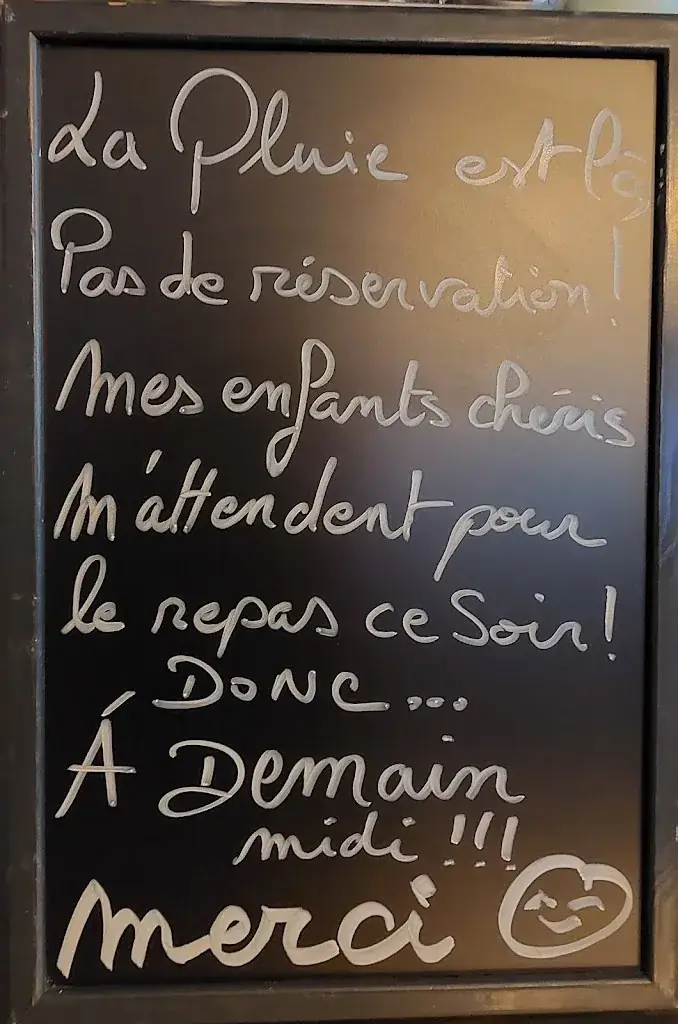 La Pluie est là
Pas de réservation !
Mes enfants chéris
M'attendent pour
le repas ce Soir !
DONC...
Á Demain
midi !!!
merci